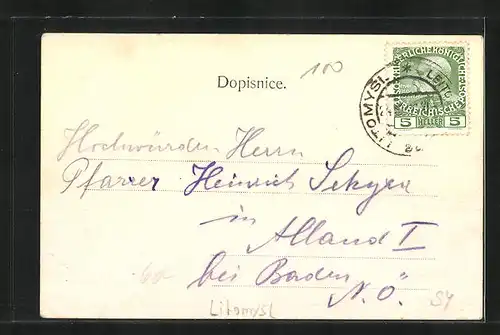 Dopisnice.
100
KAISERLICHE KÖNIGLICHE
ÖSTERREICHISCHE
5 HELLER 5
LITOMYŠL * LEITO
Hochwürden Herrn
Pfarrer Heinrich
in
Alland I
bei Baden
N.Ö.
Litomyšl
SY